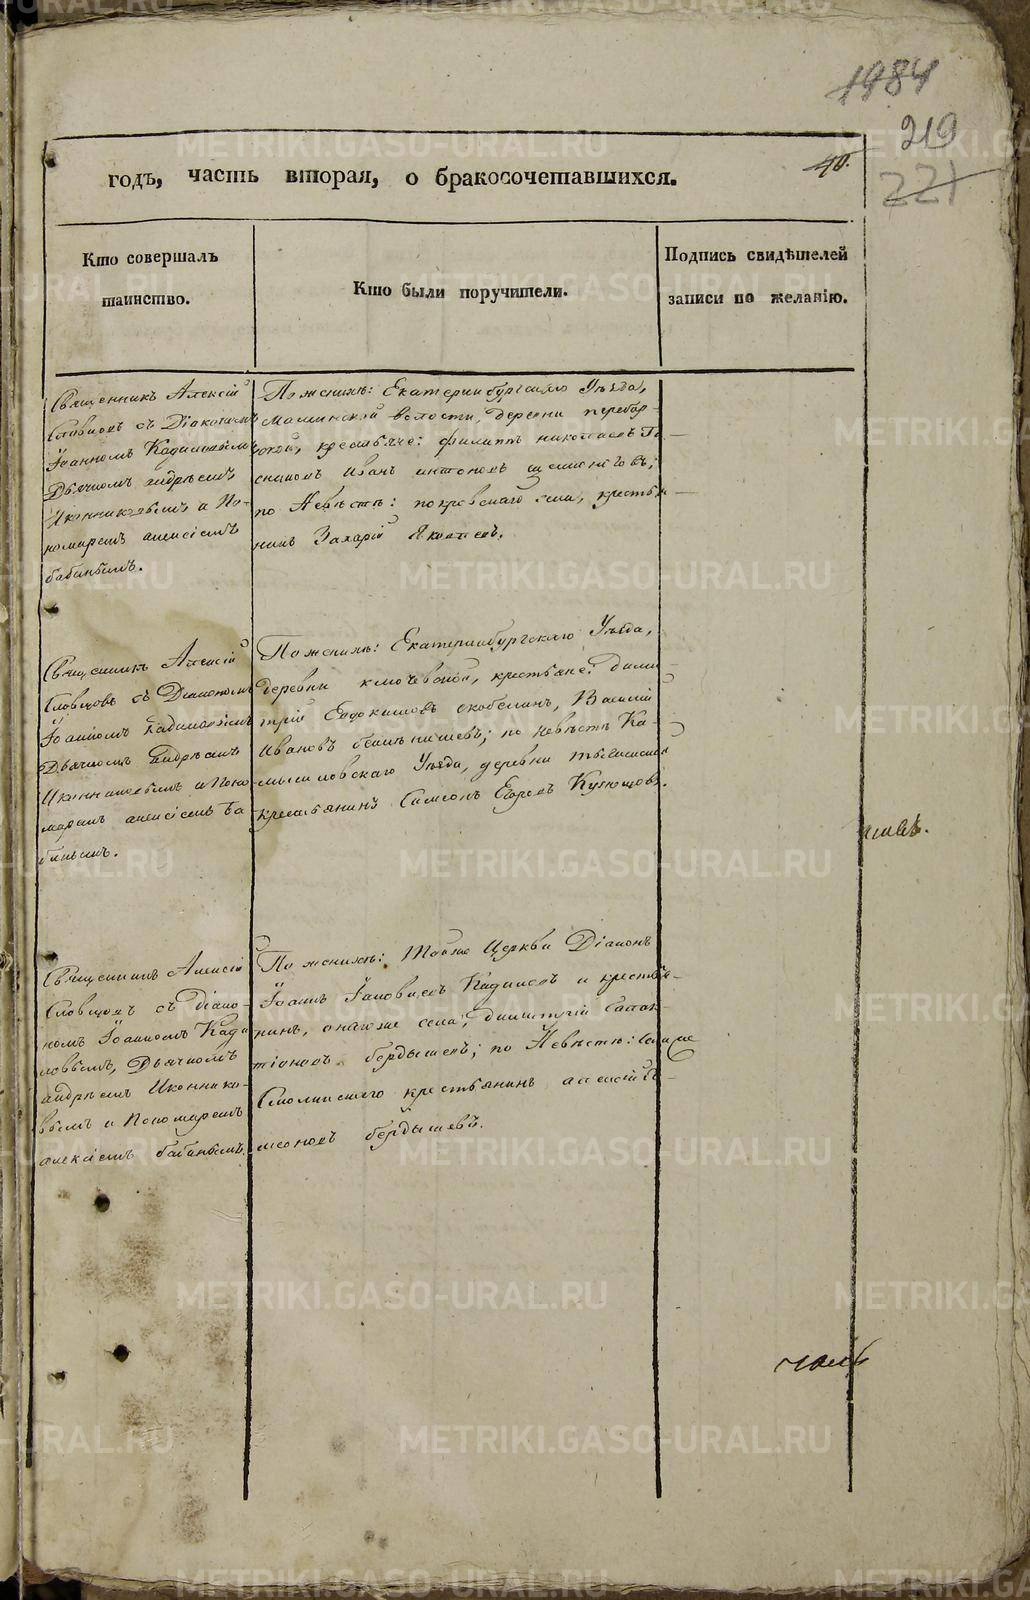 1984
219
221
40.
годъ, часть вторая, о бракосочетавшихся.
Кто совершалъ
таинство.
Кто были поручители.
Подпись свидѣтелей
записи по желанію.
Священникъ Алексій
Словцовъ съ Діакономъ
Іоанномъ Кадиловымъ
Дьячкомъ андреемъ
Иконниковымъ и По-
номаремъ алексіемъ
бабинымъ.
По женихѣ: Екатеринбургскаго Уѣзда,
Маминской волости, деревни перебор-
ной, крестьяне: филиппъ николаевъ
Иванъ антоновъ
по Невѣстѣ: покровскаго села, крестья-
нинъ Захарій Яковлевъ.
Священникъ Алексій
Словцовъ съ Діакономъ
Іоанномъ Кадиловымъ
Дьячкомъ Андреемъ
Иконниковымъ и Поно-
маремъ алексіемъ Ба-
бинымъ.
По женихѣ: Екатеринбургскаго Уѣзда,
деревни ключевской, крестьяне: Дими-
трій Евдокимовъ скобелинъ, Василій
Ивановъ по невѣстѣ Ка-
мышловскаго Уѣзда, деревни
крестьянинъ Самсонъ Егоровъ
Священникъ Алексій
Словцовъ съ Діако-
номъ Іоанномъ Кади-
ловымъ, Дьячкомъ
андреемъ Иконнико-
вымъ и Пономаремъ
алексіемъ бабинымъ.
По женихѣ: Тойже Церкви Діаконъ
Іоаннъ Кадиловъ и крестья-
нинъ, онагоже села, димитрій
бердышевъ; по Невѣстѣ: села
Смолинскаго крестьянинъ алексій
бердышевъ.